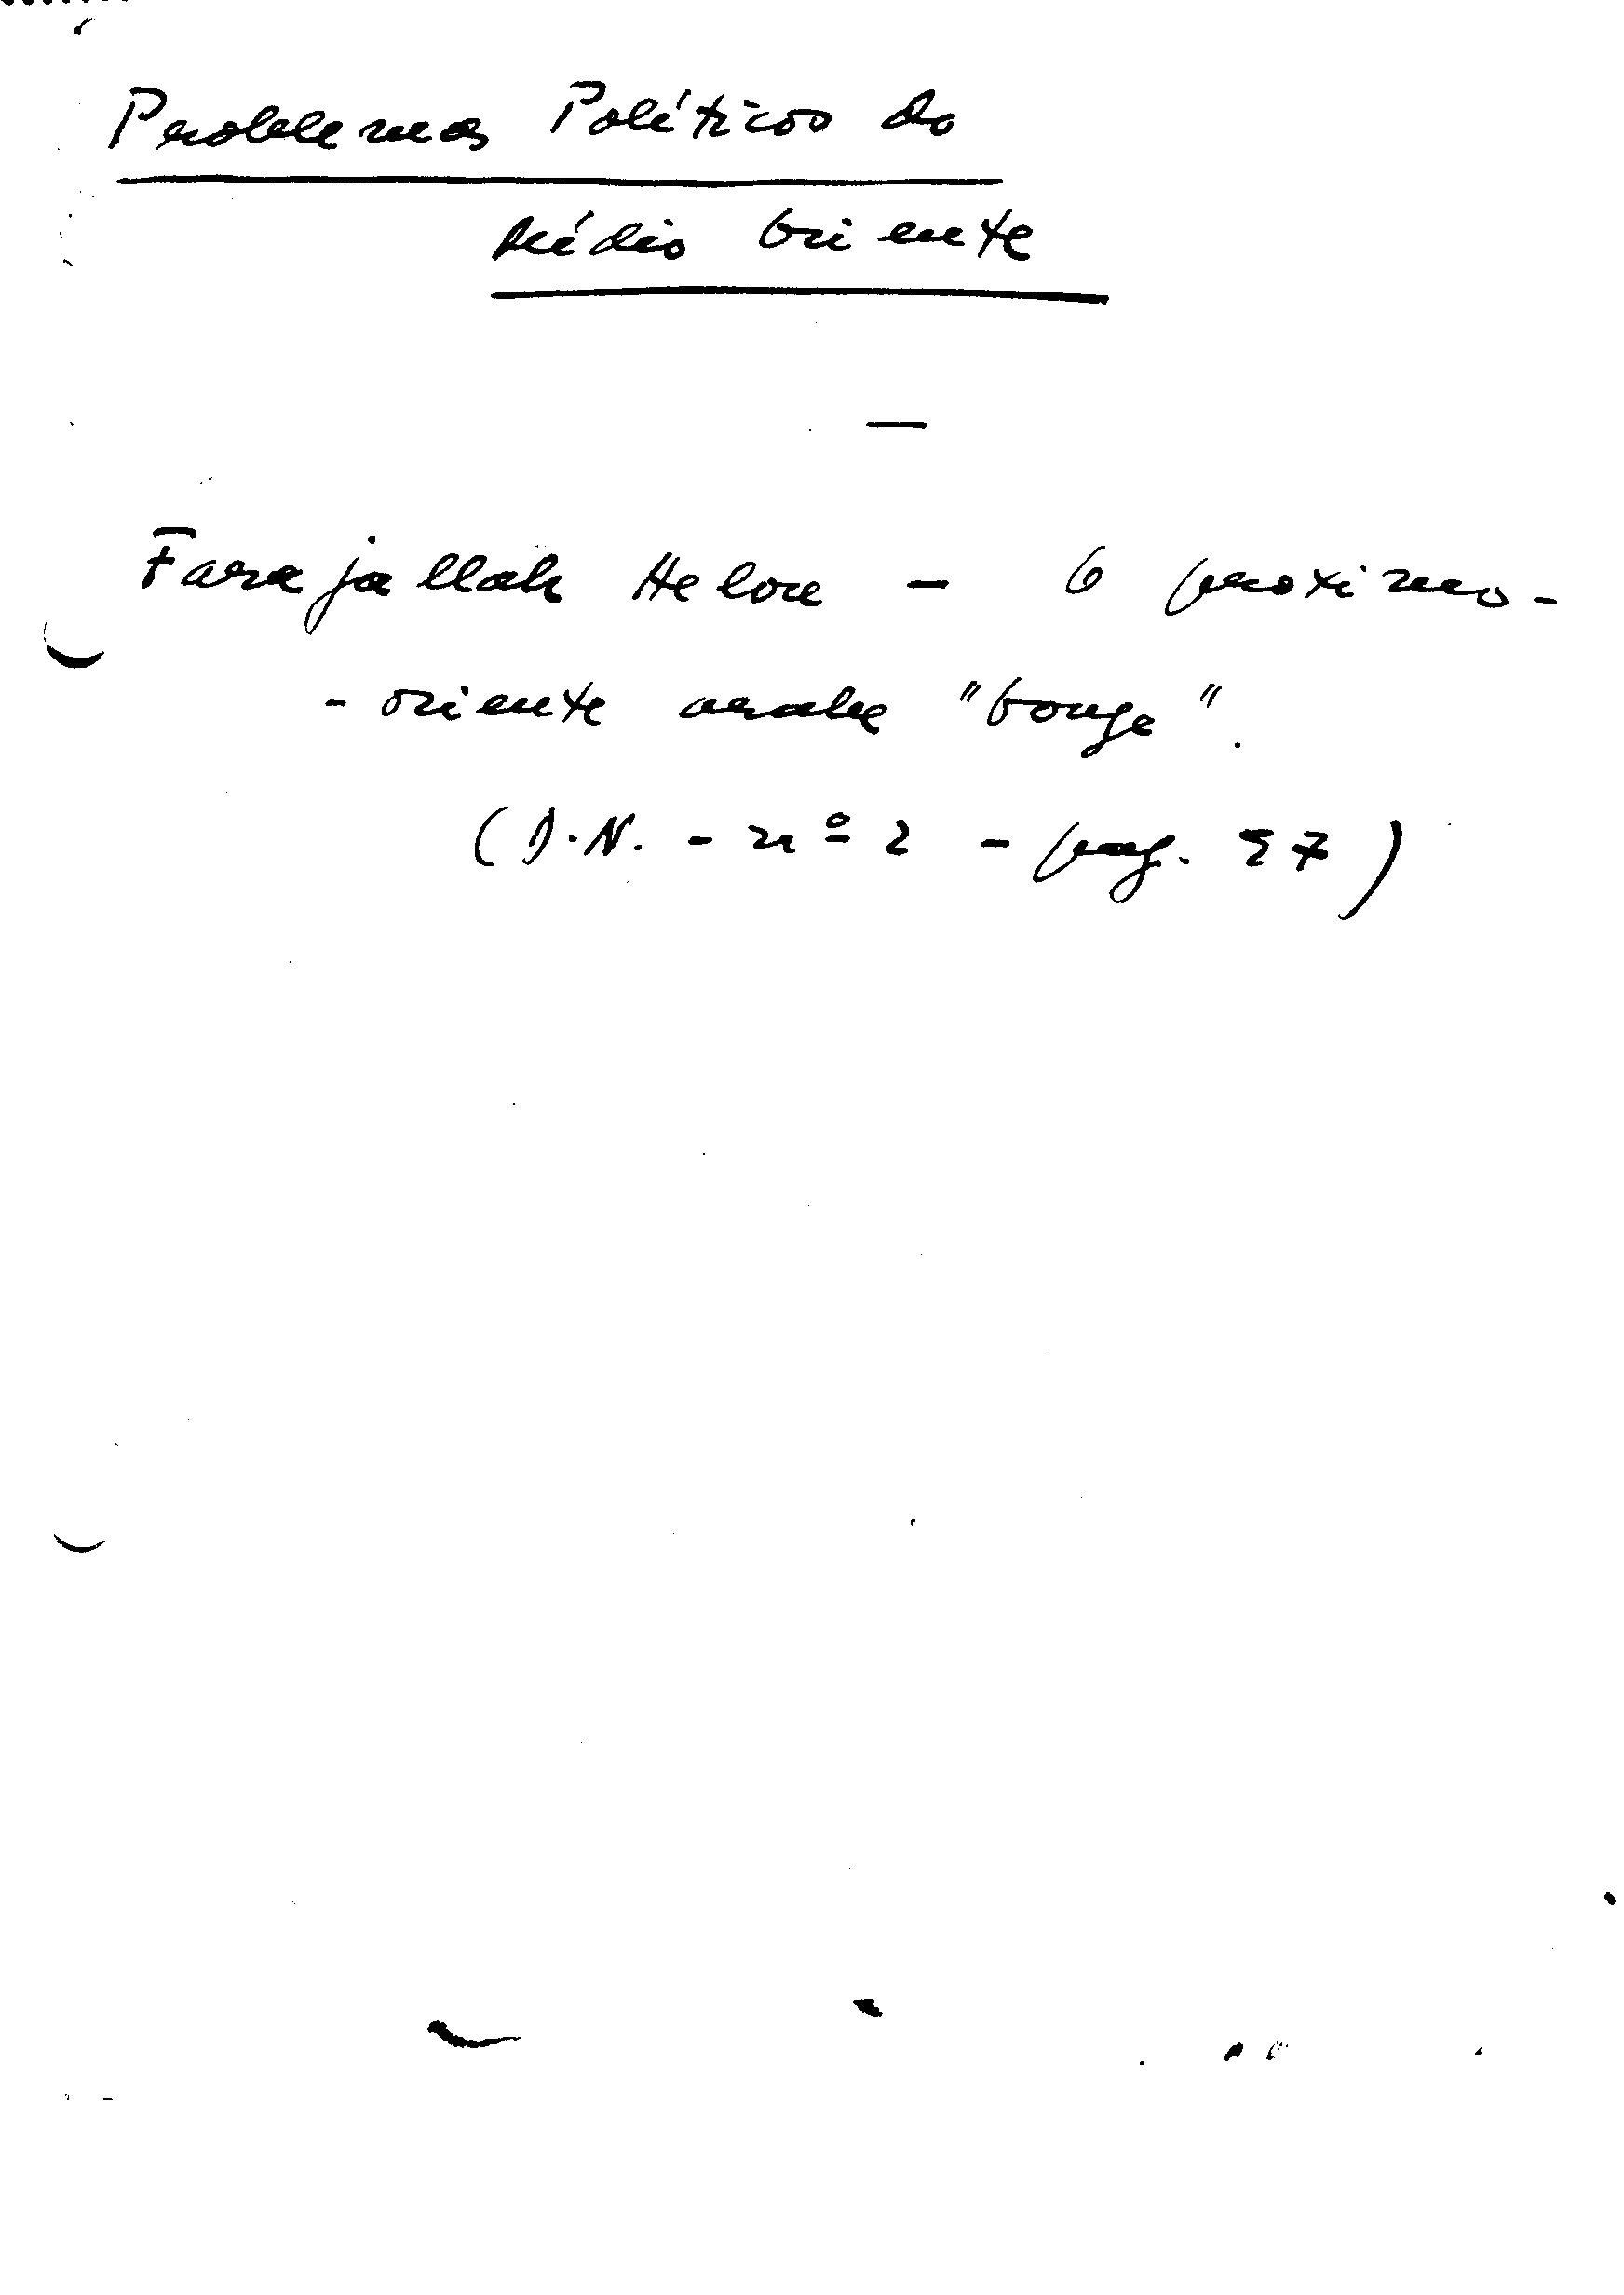 Problemas Políticos do
Médio Oriente
—
Farajallah Helou – O proximo-
- oriente arabe "bouge".
(D.N. - nº 2 - pag. 57)